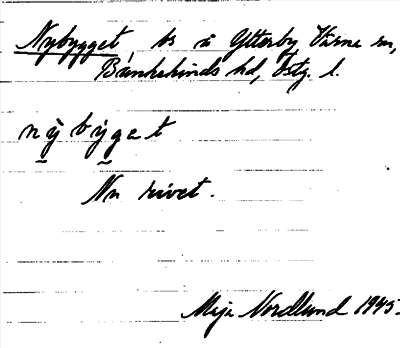 Nybygget, ts å Ytterby, Värna sn,
Bankekinds hd, Östg. l.
nỳbýget
Nu rivet.
Maja Nordlund 1945.